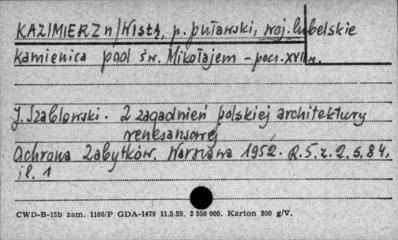 KAZIMIERZ n/Wisłą, p. puławski, woj. lubelskie
Kamienica pod św. Mikołajem - pocz. XVII w.
J. Szablowski. Z zagadnień polskiej architektury
renesansowej
Ochrona Zabytków. Warszawa 1952. R.5.z.2.s.84,
il. 1
CWD-B-15b zam. 1166/P GDA-1479 11.5.59. 2 550 000. Karton 200 g/V.